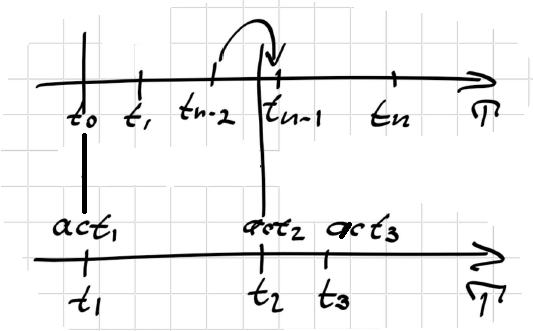 t₀ t₁ tₙ₋₂ tₙ₋₁ tₙ T
act₁ act₂ act₃
t₁ t₂ t₃ T